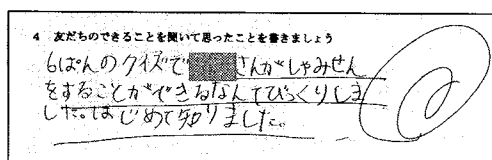 4 友だちのできることを聞いて思ったことを書きましょう
6ぱんのクイズで さんがしゃみせん
をすることができるなんてびっくりしま
した。はじめて知りました。